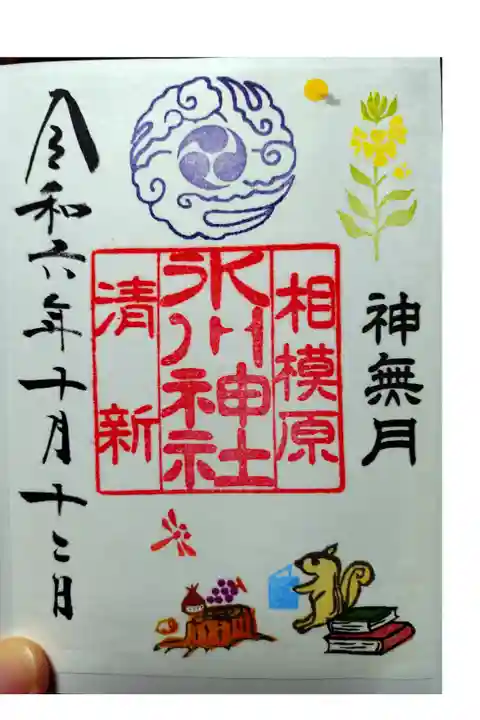 神無月
相模原
氷川神社
清新
令和六年十月十二日